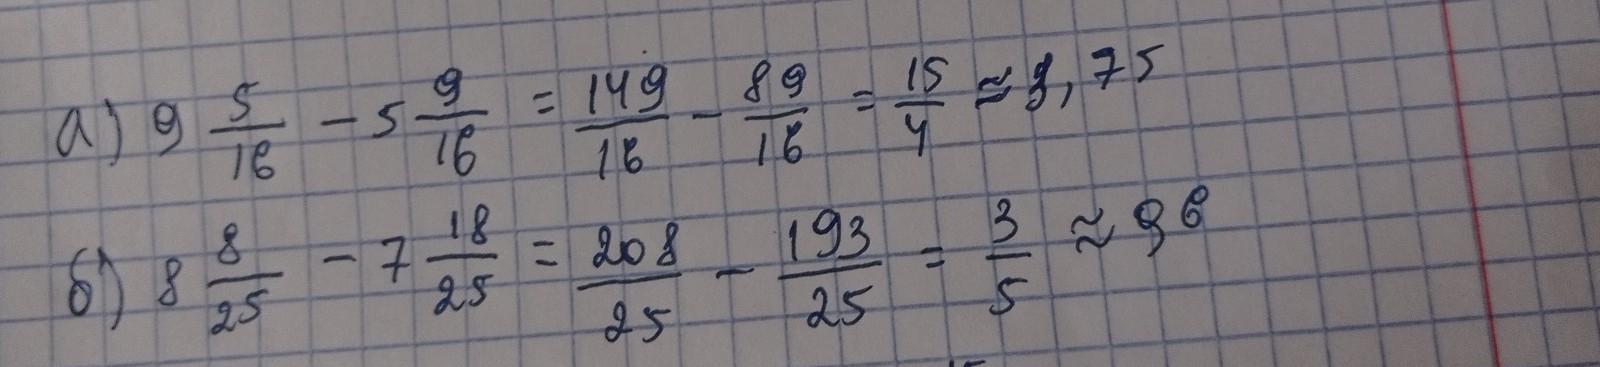 а) 9 5/16 - 5 9/16 = 149/16 - 89/16 = 15/4 ≈ 3,75
б) 8 8/25 - 7 18/25 = 208/25 - 193/25 = 3/5 ≈ 0,6